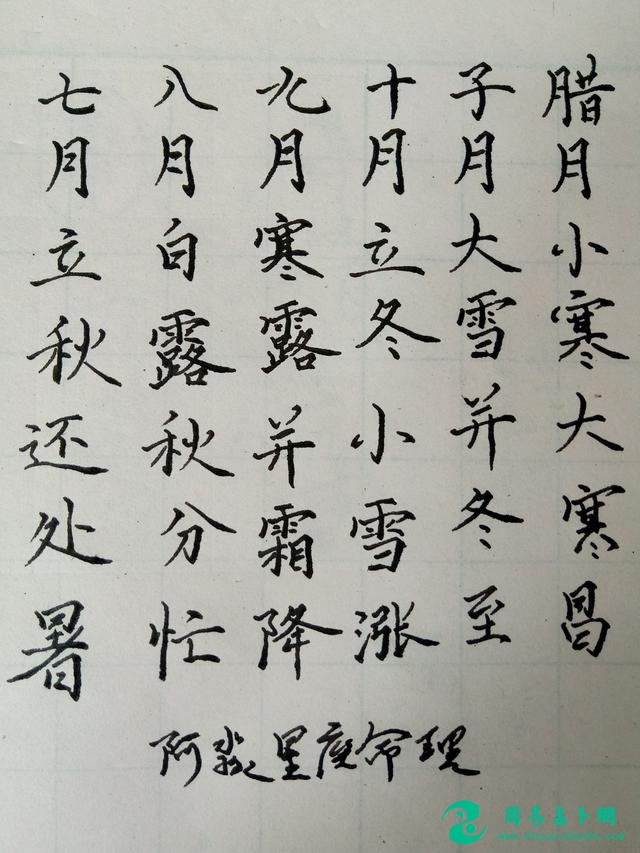 七月立秋还处暑
八月白露秋分忙
九月寒露并霜降
十月立冬小雪涨
子月大雪并冬至
腊月小寒大寒昌
阿淼星度命理
周易占卜網